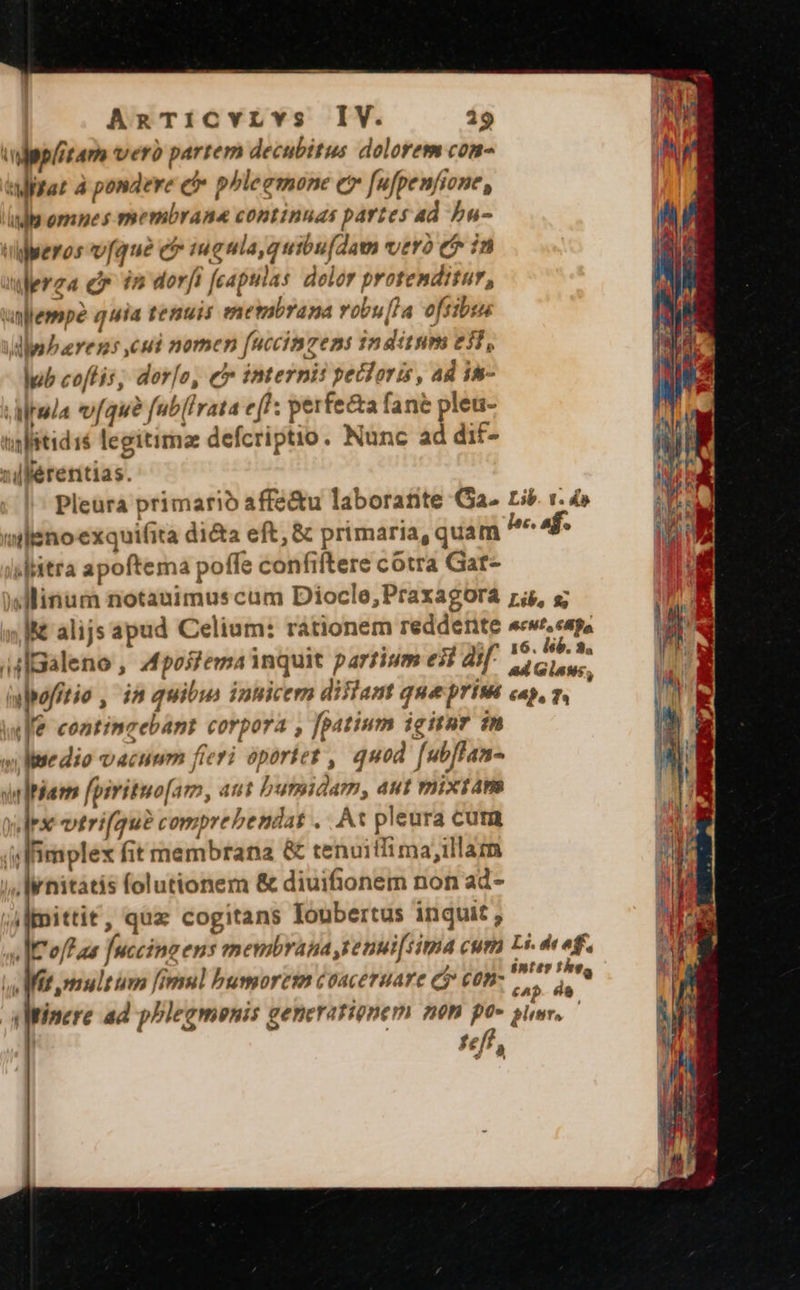 ARTICVLVS IV. 19
pſitam verò partem decubitus dolorem con-
tat à pondere & phlegmone & ſuſpenſione,
omnes membranæ continuas partes ad hu-
meros vſquè & iugula, quibuſdam verò & in
terga & in dorſi ſcapulas dolor protenditur,
nempè quia tenuis membrana robuſta oſsibus
inhærens, cui nomen ſuccingens inditum eſt,
ſub coſtis, dorſo, & internis pectoris, ad iu-
gula vſquè ſubſtrata eſt: perfecta ſanè pleu-
ritidis legitimæ deſcriptio. Nunc ad dif-
ferentias.
Pleura primariò affectu laborante Ga- Lib. 1. de
leno exquiſita dicta eſt, & primaria, quam loc. aff.
citra apoſtema poſſe conſiſtere cõtra Gar-
linum notauimus cum Diocle, Praxagora Lib. 2;
& alijs apud Celium: rationem reddente acut. cap.
Galeno, Apoſtema inquit partium eſt diſ- 16. lib. 2.
poſitio, in quibus inuicem diſtant quæ prius ad Glauc,
ſe contingebant corpora, ſpatium igitur in cap. 7.
medio vacuum fieri oportet, quod ſubſtan-
tiam ſpirituoſam, aut humidam, aut mixtam
ex vtriſquè comprehendat. At pleura cum
ſimplex ſit membrana & tenuiſſima, illam
vnitatis ſolutionem & diuiſionem non ad-
mittit, quæ cogitans Ioubertus inquit,
Coſtas ſuccingens membrana, tenuiſsima cum Li. de aff.
ſit, multum ſimul humorem coaceruare & con- inter tho,
tinere ad phlegmonis generationem non po- cap. de
pleur.
teſt,